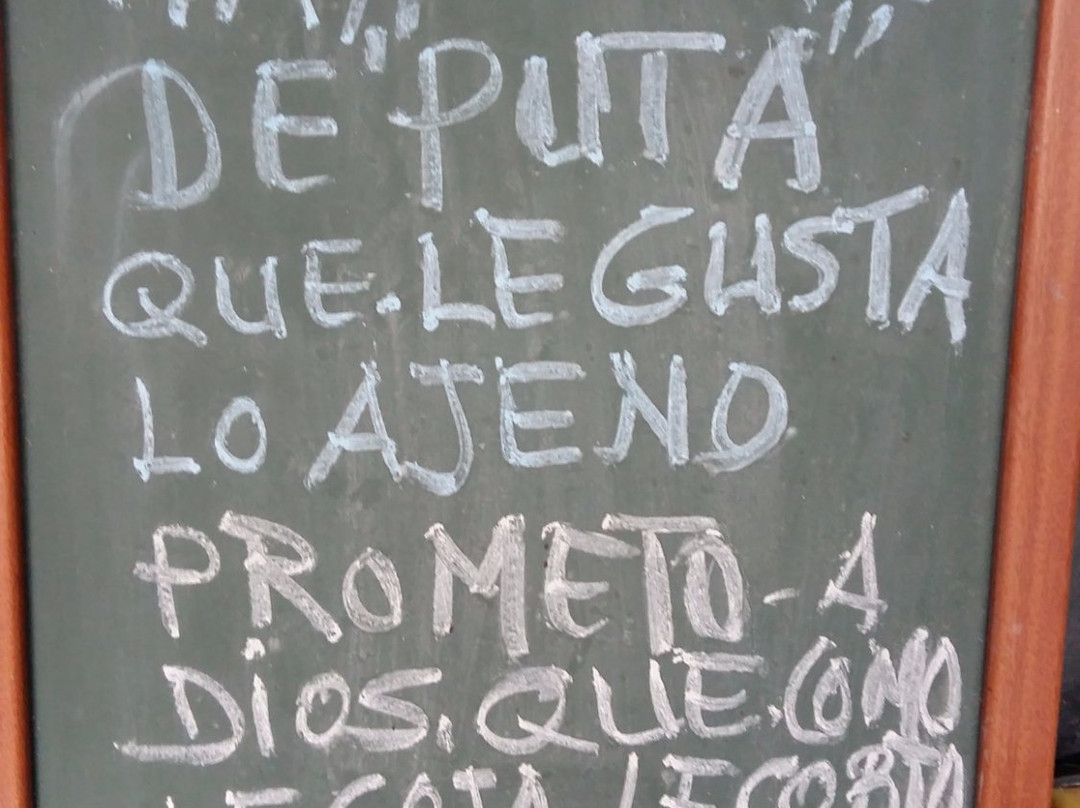 DE "PUTA"
QUE. LE GUSTA
LO AJENO
PROMETO - A
DIOS. QUE. COMO